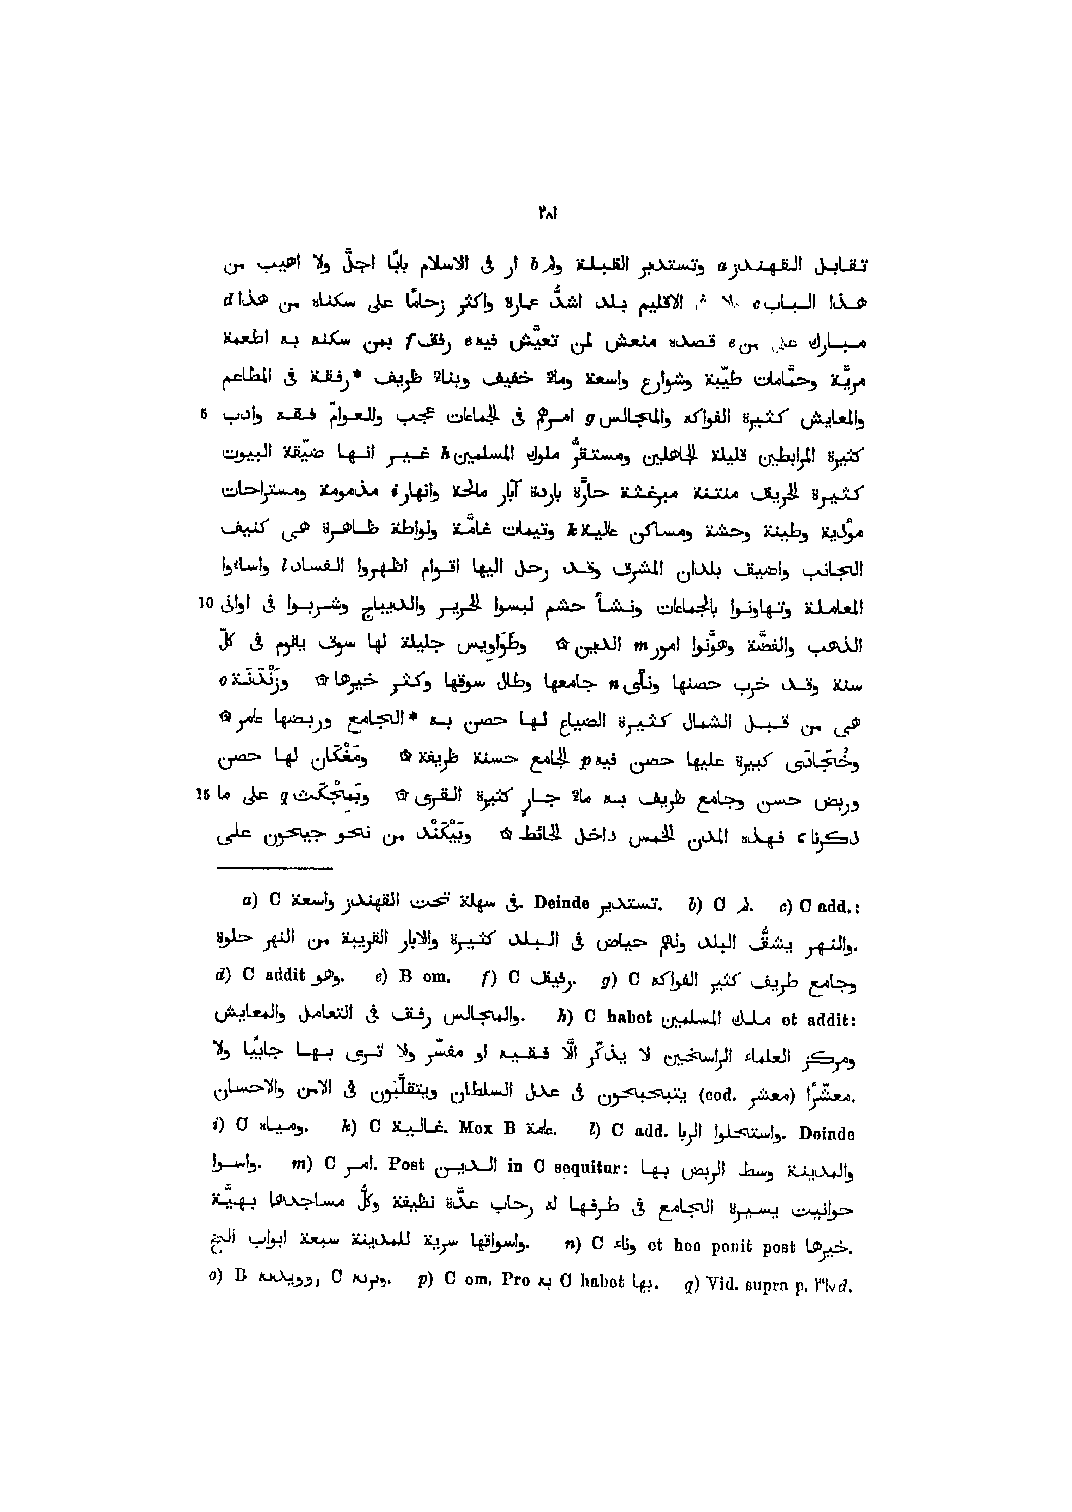 ٢٨١
تقابل القهندز a وتستدبر القبلة ولم b ار فى الاسلام بابًا اجلّ ولا اهيب من
هذا الباب c الاقليم بلد اشدُّ عمارة واكثر زحامًا على سكنه من هذا d
مبارك على من e قصده منعش لمن تعيّش فيه e رفق f بمن سكنه به اطعمة
مريّة وحمّامات طيّبة وشوارع واسعة وماء خفيف وبناء ظريف *رفقة فى المطاعم
والمعايش كثيرة الفواكه والمجالس g امرهم فى الجماعات عجب والعوامّ فقه وادب 5
كثيرة المرابطين قليلة الجاهلين ومستقرُّ ملوك المسلمين h غير انها ضيّقة البيوت
كثيرة الحريف منتنة مبرغثة حارَّة باردة آبار مالحة وانهار i مذمومة ومستراحات
موّذية وطينة وحشة ومساكن غالية k وتيمات غامّة ولواطة ظاهرة هى كنيف
الجانب واضيق بلدان المشرق وقد رحل اليها اقوام اظهروا الفساد l واساءوا
المعاملة وتهاونوا بالجماعات ونشأ حشم لبسوا الحرير والديباج وشربوا فى اوانى 10
الذهب والفضّة وهوّنوا امور m الدين ۞ وطَوَاويس جليلة لها سوق يقوم فى كلّ
سنة وقد خرب حصنها ونأى n جامعها وطال سوقها وكثر خيرها ۞ وزَنْدَنَة o
هى من قبل الشمال كثيرة الضياع لها حصن به *الجامع وربضها عامر ۞
وخُجَادَى كبيرة عليها حصن فيه p الجامع حسنة ظريفة ۞ ومَغْكَان لها حصن
وربض حسن وجامع ظريف به ماء جارٍ كثيرة القرى ۞ وبَمِجْكَث q على ما 15
ذكرناه فهذه المدن الخمس داخل الحائط ۞ وبَيْكَنْد من نحو جيحون على
a) C فى سهلة تحت القهندز واسعة. Deinde تستدبر. b) C لم. c) C add.:
والنهر يشقُّ البلد ولهم حياض فى البلد كثيرة والابار القريبة من النهر حلوة.
d) C addit وهو. e) B om. f) C رفيق. g) C وجامع ظريف كثير الفواكه
والمجالس رفق فى التعامل والمعايش. h) C habet ملك المسلمين et addit:
ومركز العلماء الراسخين لا يذكّر الّا فقيه او مفسّر ولا ترى بها جابيًا ولا
معشّرًا (معشر cod.) يتبحبحون فى عدل السلطان ويتقلّبون فى الامن والاحسان.
i) C ومياه. k) C غالية. Mox B عامة. l) C add. واستحلوا الربا. Deinde
واسوا. m) C امر. Post الدين in C sequitur: والمدينة وسط الربض بها
حوانيت يسيرة الجامع فى طرفها له رحاب عدّة نظيفة وكلُّ مساجدها بهيّة
واسواقها سرية للمدينة سبعة ابواب الخ. n) C وناء et hoc ponit post خيرها.
o) B , C وبرنه. p) C om. Pro به C habet بها. q) Vid. supra p. ٢٦٧ d.